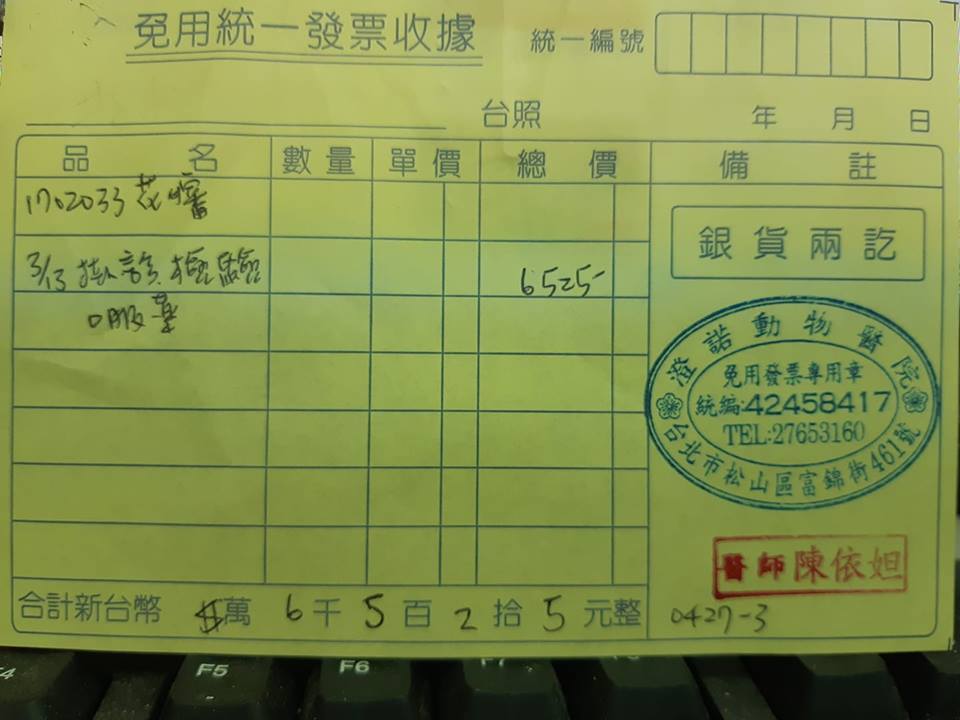 免用統一發票收據
統一編號
台照 年 月 日
品名 數量 單價 總價 備註
1702033 花嬸
3/13 掛診.檢驗 6525-
口服藥
銀貨兩訖
澄諾動物醫院
免用發票專用章
統編:42458417
TEL:27653160
台北市松山區富錦街461號
醫師陳依妲
合計新台幣 萬 6 千 5 百 2 拾 5 元整
0427-3
F4 F5 F6 F7